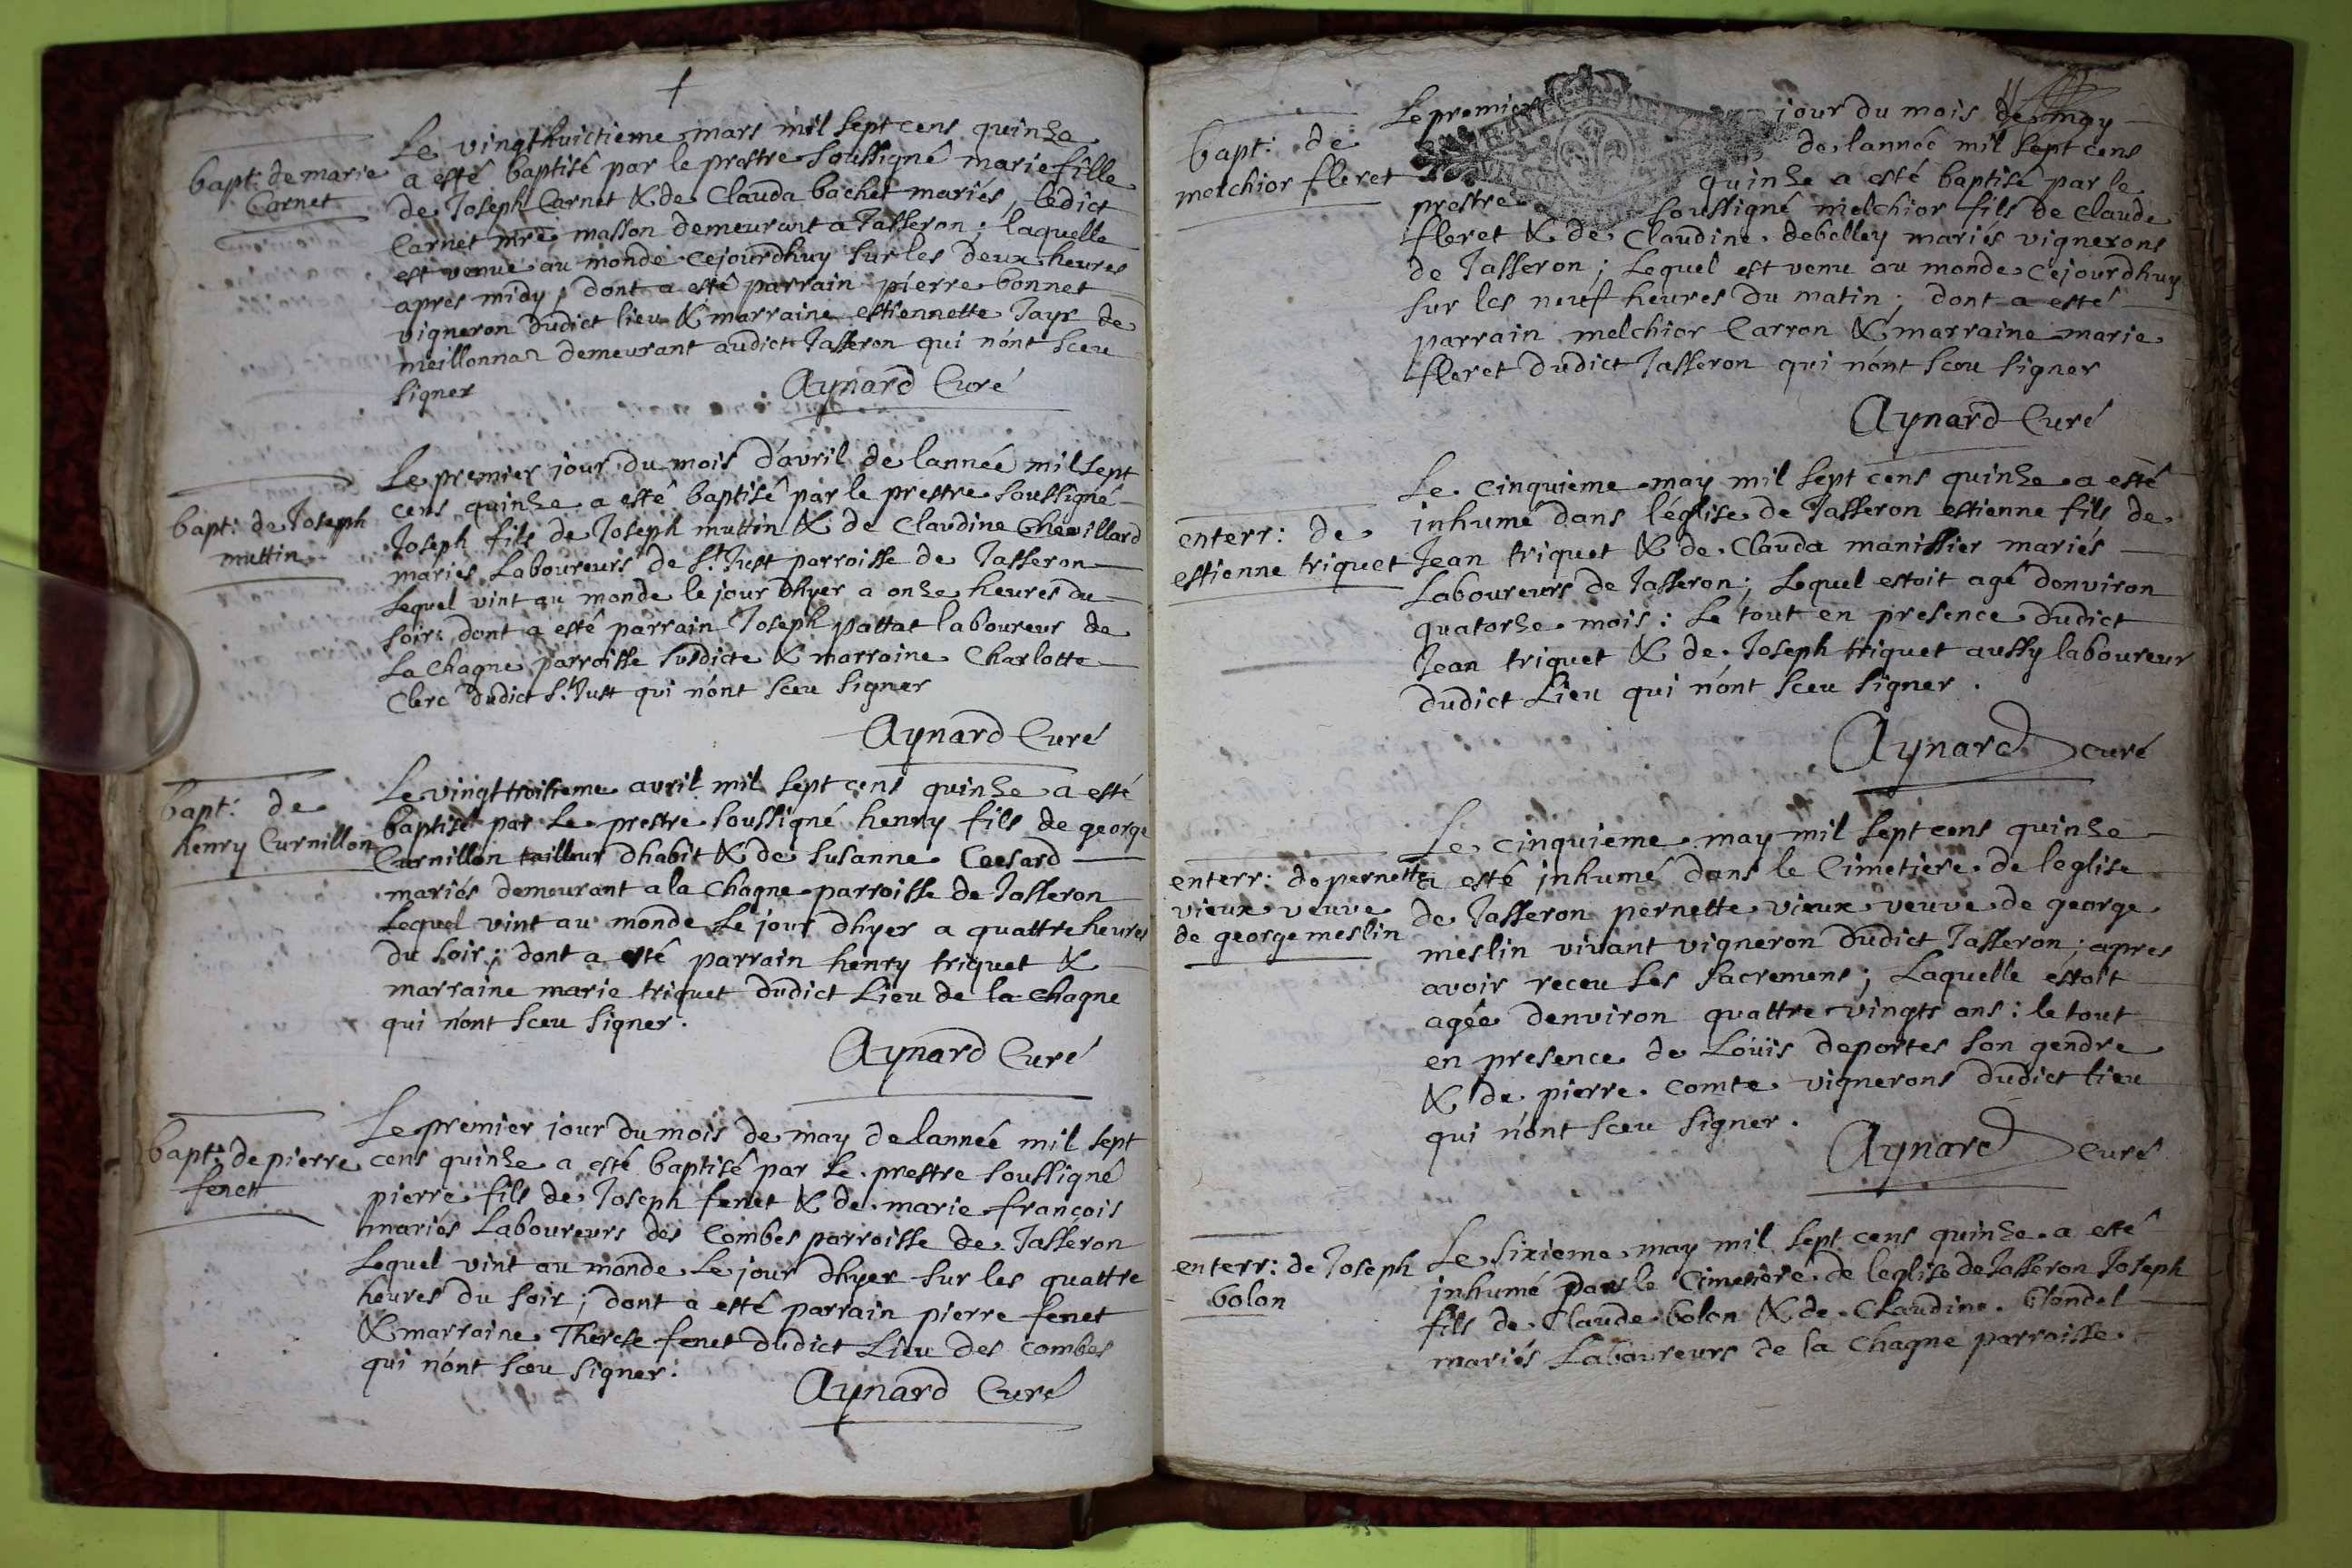 Le vingthuictieme mars mil sept cens quinze
bapt: de marie
Carnet
a esté baptisé par le prestre soussigné marie fille
de Joseph Carnet & de Clauda bachet mariés, ledict
Carnet mre masson demeurant a Jasseron; laquelle
est venue au monde cejourdhuy sur les deux heures
apres midy; dont a esté parrain pierre bonnet
vigneron dudict lieu & marraine estiennette Jayr de
meillonna demeurant audict Jasseron qui n'ont sceu
signer
Aynard Curé
bapt: de Joseph
muttin
Le premier jour du mois d'avril de lannée mil sept
cens quinze a esté baptisé par le prestre soussigné
Joseph fils de Joseph muttin & de Claudine Chevillard
mariés Laboureurs de St. Just parroisse de Jasseron
Lequel vint au monde le jour dhyer a onze heures du
soir: dont a esté parrain Joseph pattat laboureur de
La Chagne parroisse susdicte & marraine Charlotte
Clerc dudict St. Just qui n'ont sceu signer
Aynard Curé
bapt: de
henry Curnillon
Le vingttroisieme avril mil sept cens quinze a esté
baptisé par Le prestre soussigné henry fils de george
Curnillon tailleur dhabit & de susanne Coesard
mariés demeurant a la Chagne parroisse de Jasseron
Lequel vint au monde Le jour dhyer a quattre heures
du soir; dont a esté parrain henry triquet &
marraine marie triquet dudict Lieu de la Chagne
qui n'ont sceu signer.
Aynard Curé
bapt: de pierre
fenet
Le premier jour du mois de may de lannée mil sept
cens quinze a esté baptisé par Le prestre soussigné
pierre fils de Joseph fenet & de marie françois
mariés Laboureurs des Combes parroisse de Jasseron
Lequel vint au monde Le jour dhyer sur les quattre
heures du soir; dont a esté parrain pierre fenet
& marraine Therese fenet dudict Lieu des combes
qui n'ont sceu signer:
Aynard Curé
bapt: de
melchior fleret
Le premier jour du mois de may
de lannée mil sept cens
quinze a esté baptisé par le
prestre soussigné melchior fils de claude
fleret & de Claudine debelley mariés vignerons
de Jasseron; Lequel est venu au monde cejourdhuy
sur les neuf heures du matin; dont a esté
parrain melchior Carron & marraine marie
fleret dudict Jasseron qui n'ont sceu signer
Aynard Curé
enterr: de
estienne triquet
Le cinquieme may mil sept cens quinze a esté
inhumé dans léglise de Jasseron estienne fils de
Jean triquet & de Clauda manissier mariés
Laboureurs de Jasseron; Lequel estoit agé denviron
quatorze mois: Le tout en presence dudict
Jean triquet & de Joseph triquet aussy laboureur
dudict Lieu qui n'ont sceu signer.
Aynard curé
enterr: de pernette
vieux veuve
de george meslin
Le cinquieme may mil sept cens quinze
a esté inhumé dans le Cimetiere de leglise
de Jasseron pernette vieux veuve de george
meslin vivant vigneron dudict Jasseron; apres
avoir receu les sacremens; Laquelle estoit
agée denviron quattre vingts ans: le tout
en presence de Louis deportes son gendre
& de pierre comte vignerons dudict lieu
qui n'ont sceu signer.
Aynard curé
enterr: de Joseph
bolon
Le sixieme may mil sept cens quinze a esté
inhumé dans le Cimetiere de leglise de Jasseron Joseph
fils de Claude bolon & de Claudine blondel
mariés Laboureurs de la Chagne parroisse